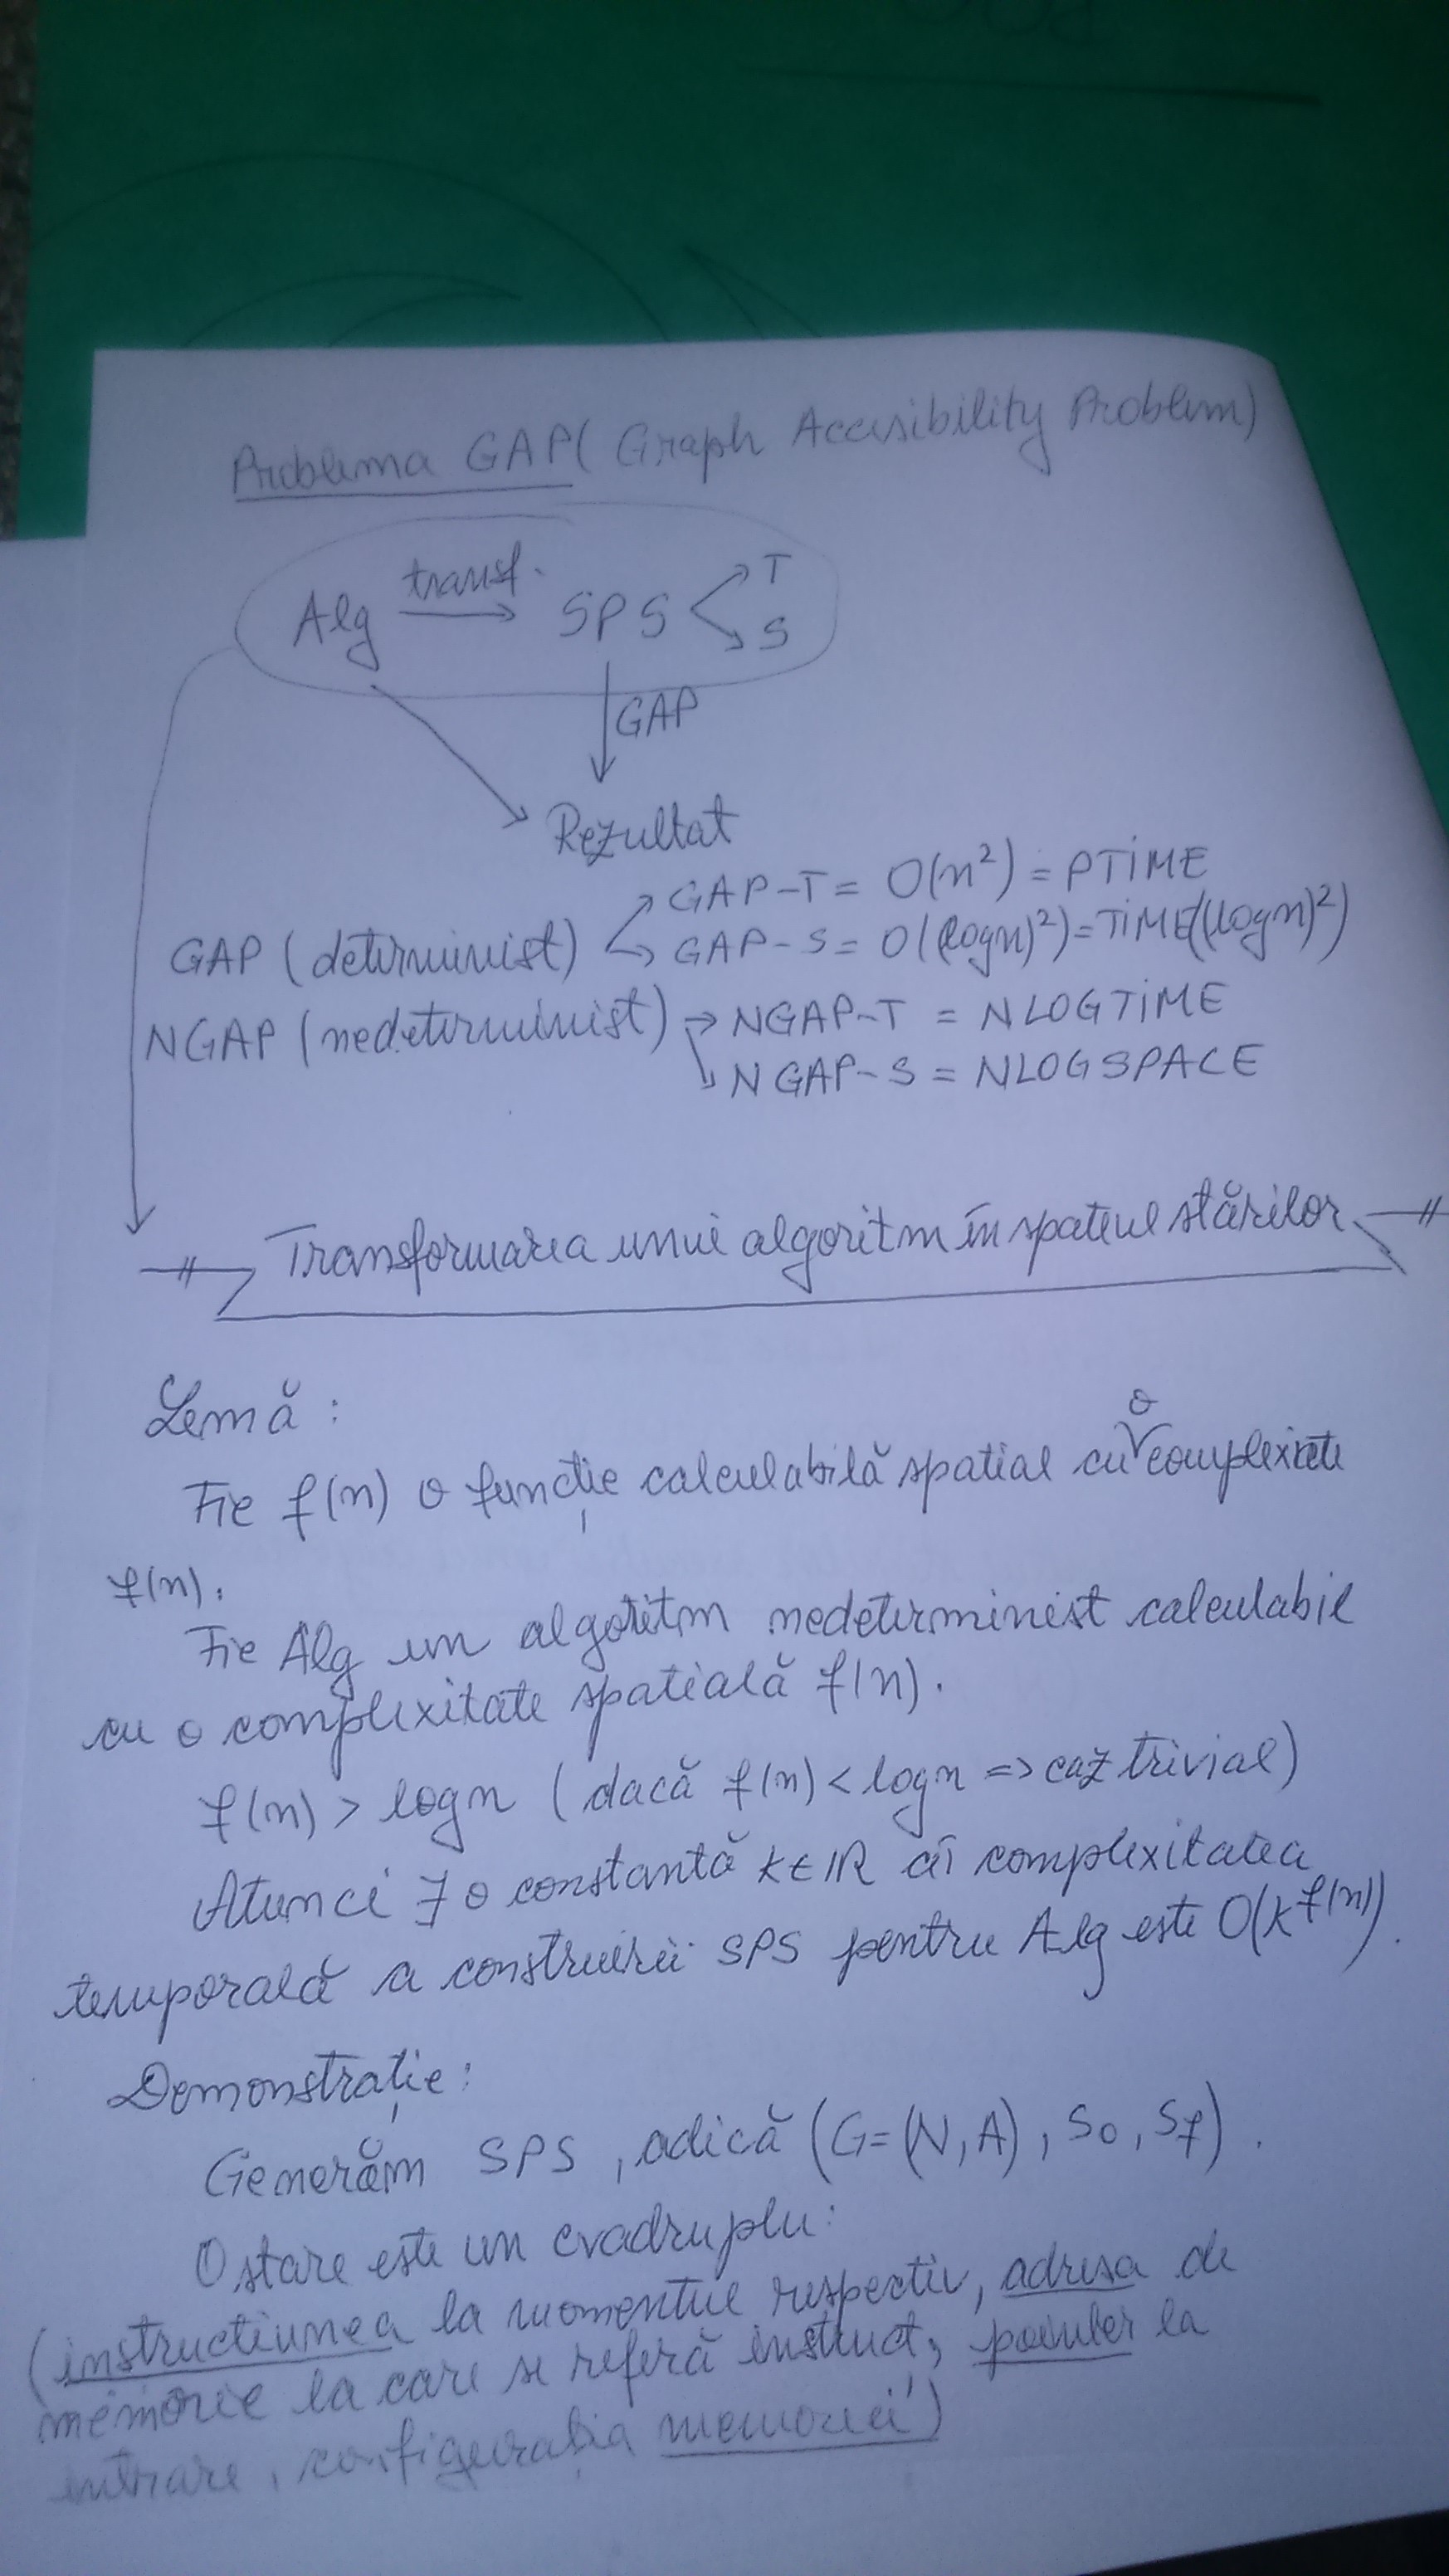 Problema GAP( Graph Accesibility Problem)
Alg transf. SPS T
S
GAP
Rezultat
GAP-T = O(n²) = PTIME
GAP (determinist) GAP-S = O((logn)²) = TIME((logn)²)
NGAP (nedeterminist) → NGAP-T = NLOGTIME
NGAP-S = NLOGSPACE
Transformarea unui algoritm în spațiul stărilor
Lemă :
Fie f(n) o funcție calculabilă spatial cu o complexitate
f(n).
Fie Alg un algoritm nedeterminist calculabil
cu o complexitate spatială f(n).
f(n) > logn (dacă f(n) < logn => caz trivial)
Atunci ∃ o constantă k∈ℝ aî complexitatea
temporală a construirii SPS pentru Alg este O(k^f(n)).
Demonstrație:
Generăm SPS, adică (G=(N,A), S0, Sf).
O stare este un cvadruplu:
(instructiunea la momentul respectiv, adresa de
memorie la care se referă instruct, pointer la
intrare, configurația memoriei)